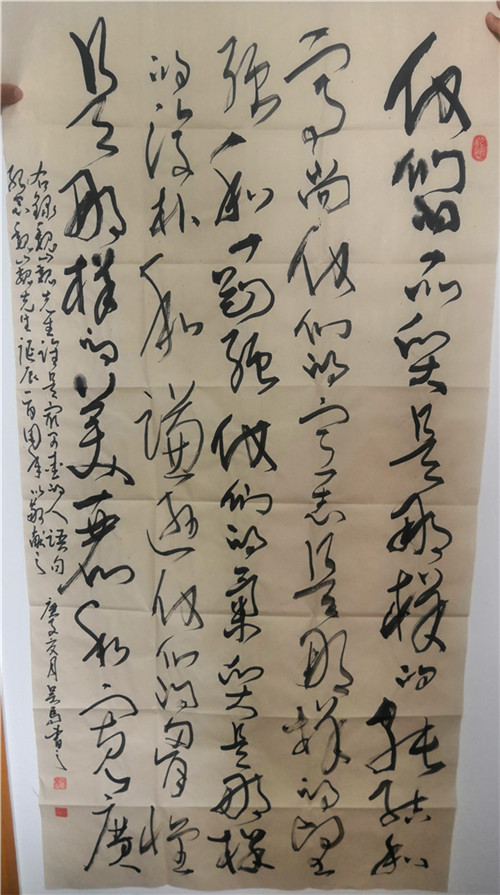 他们的品质是那样的纯洁和
高尚他们的意志是那样的坚
韧和刚强他们的气质是那样
的淳朴和謙逊他们的胸懷
是那样的美丽和宽廣
右録魏巍先生谁是最可爱的人语句
纪念魏巍先生诞辰一百周年以敬献之 庚子亥月